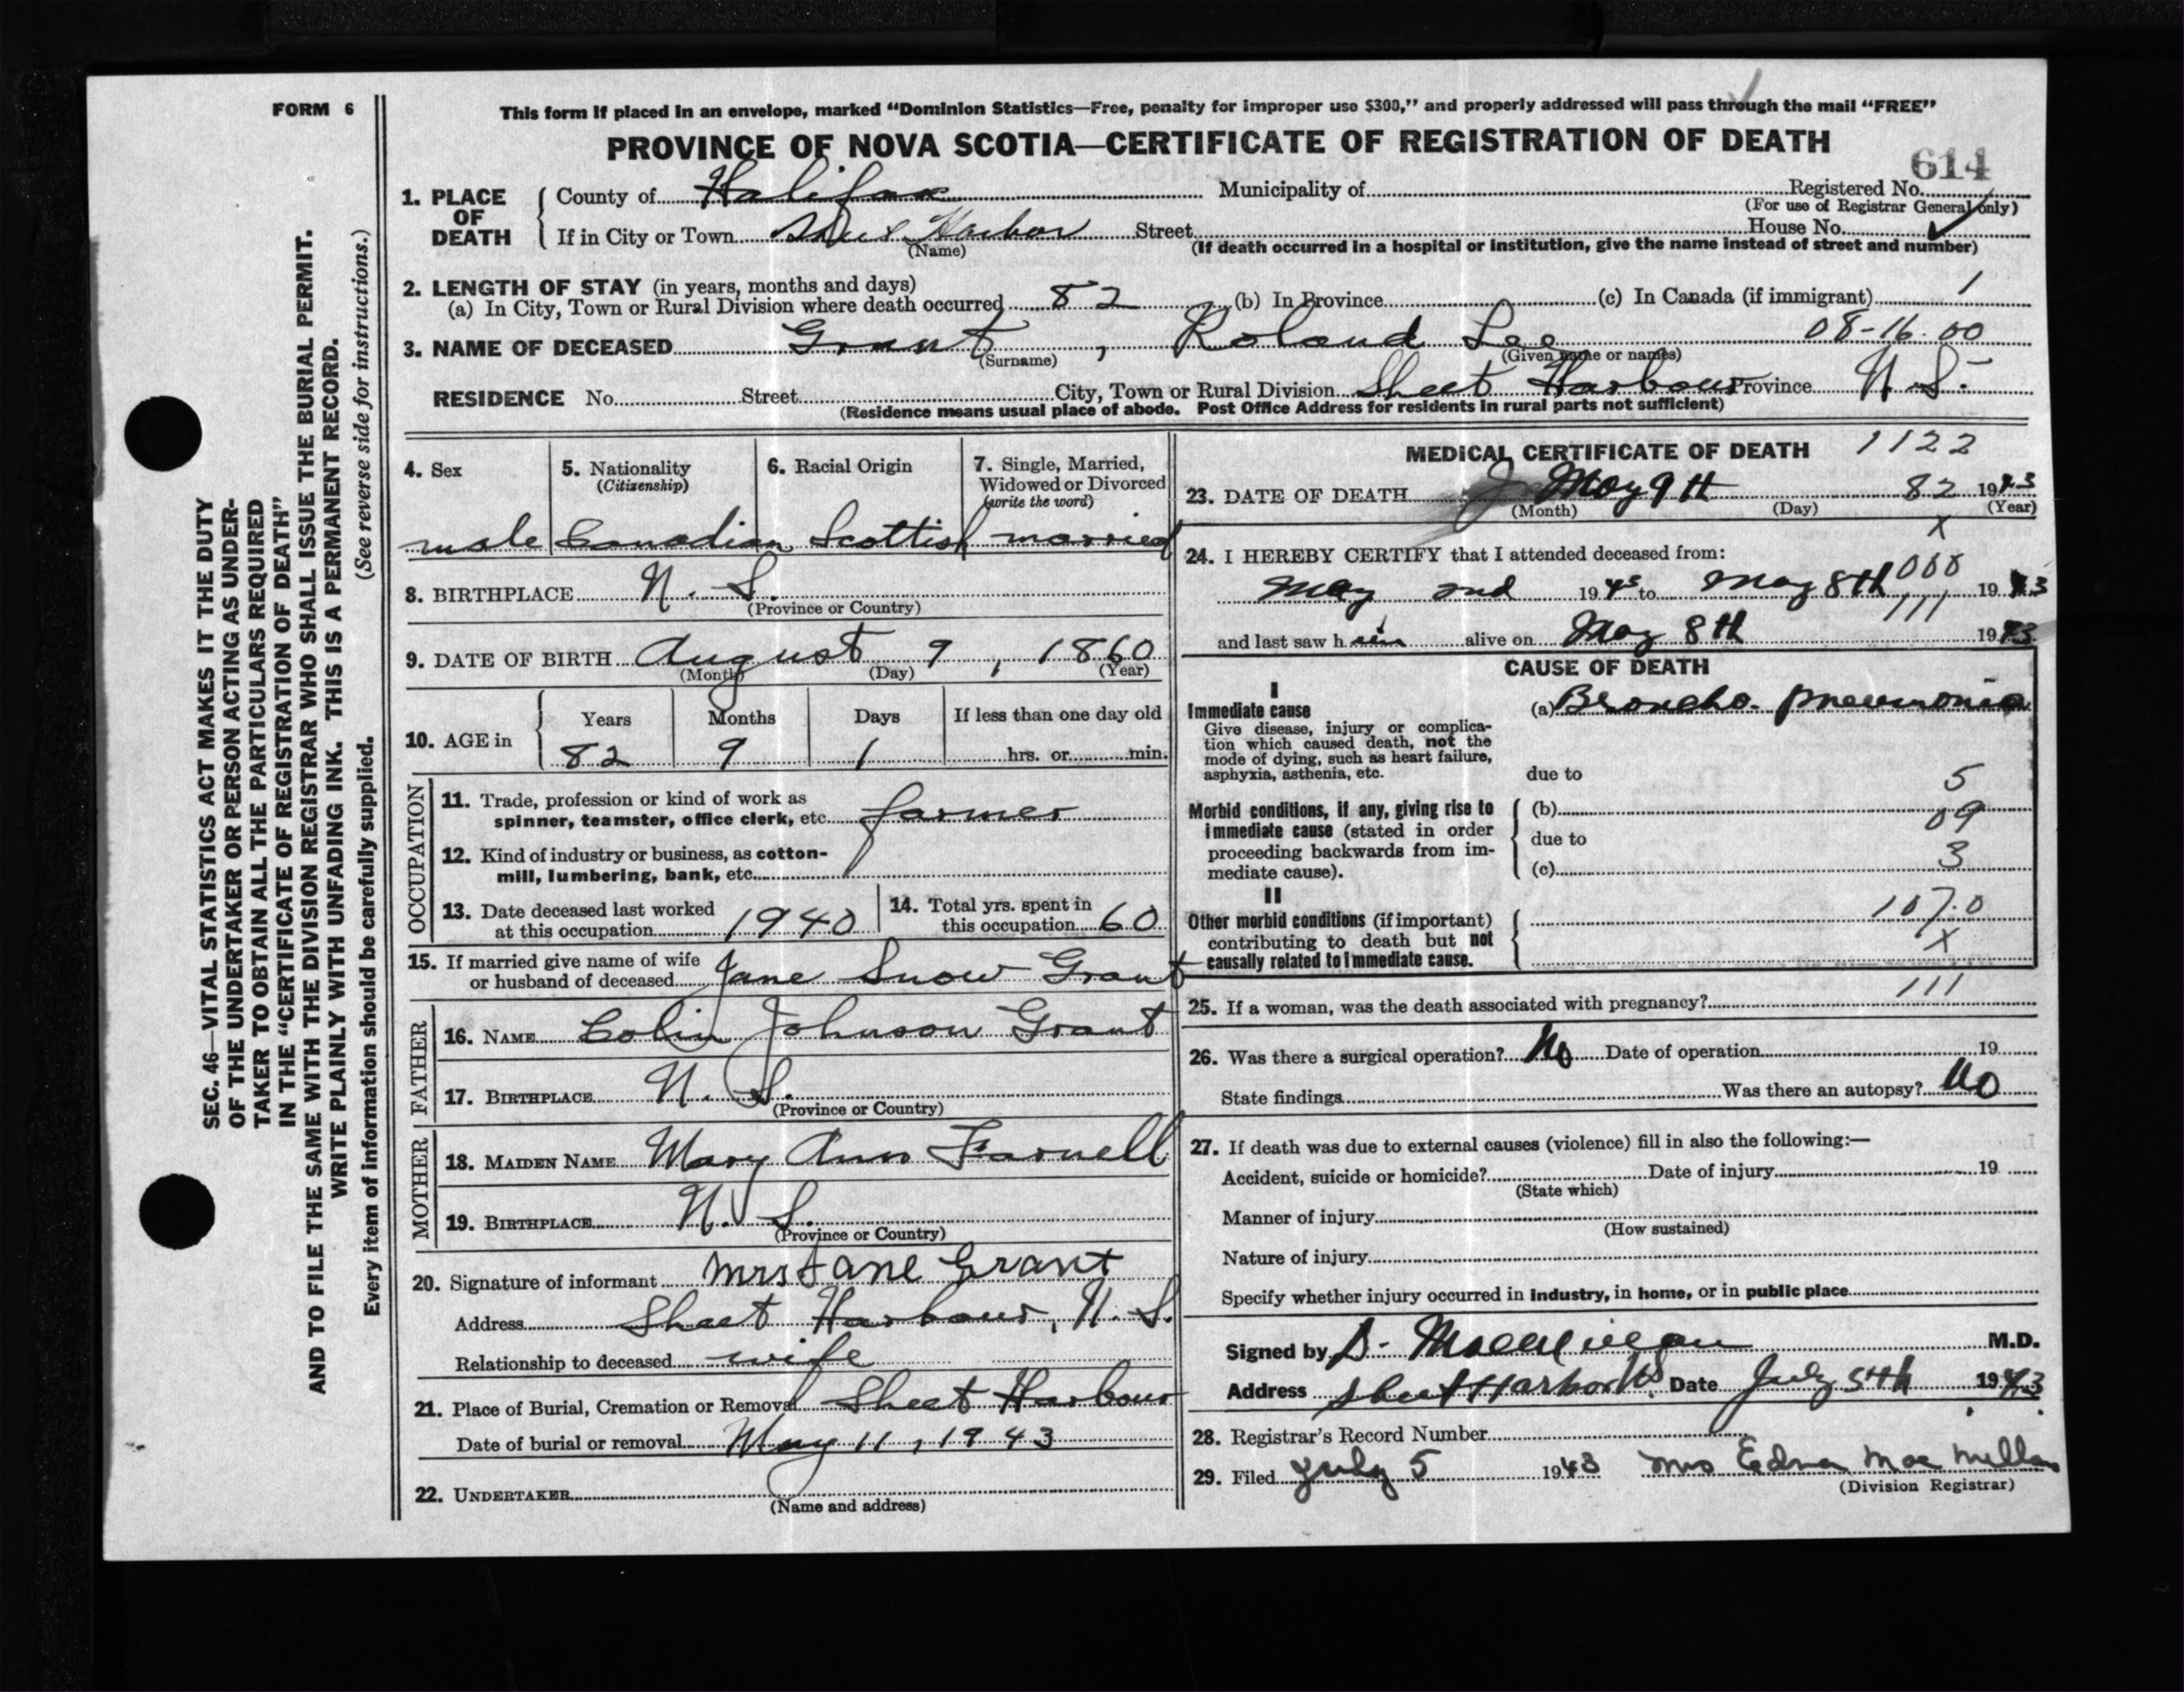 FORM 6
This form if placed in an envelope, marked "Dominion Statistics—Free, penalty for improper use $300," and properly addressed will pass through the mail "FREE"
PROVINCE OF NOVA SCOTIA—CERTIFICATE OF REGISTRATION OF DEATH
614
1. PLACE OF DEATH
County of Halifax Municipality of Registered No.
(For use of Registrar General only)
If in City or Town Harbor Street House No.
(Name) (If death occurred in a hospital or institution, give the name instead of street and number)
2. LENGTH OF STAY (in years, months and days)
(a) In City, Town or Rural Division where death occurred 82 (b) In Province (c) In Canada (if immigrant) 1
08-16.00
3. NAME OF DECEASED Grant, Roland Lee
(Surname) (Given name or names)
RESIDENCE No. Street City, Town or Rural Division Sheet Harbour Province N.S.
(Residence means usual place of abode. Post Office Address for residents in rural parts not sufficient)
4. Sex 5. Nationality (Citizenship) 6. Racial Origin 7. Single, Married, Widowed or Divorced (write the word)
male Canadian Scottish married
8. BIRTHPLACE N. S.
(Province or Country)
9. DATE OF BIRTH August 9, 1860
(Month) (Day) (Year)
10. AGE in Years Months Days If less than one day old
82 9 1 hrs. or min.
OCCUPATION
11. Trade, profession or kind of work as spinner, teamster, office clerk, etc. farmer
12. Kind of industry or business, as cotton-mill, lumbering, bank, etc.
13. Date deceased last worked at this occupation 1940
14. Total yrs. spent in this occupation 60
15. If married give name of wife or husband of deceased Jane Snow Grant
FATHER
16. NAME Colin Johnson Grant
17. BIRTHPLACE N. S.
(Province or Country)
MOTHER
18. MAIDEN NAME Mary Ann Farnell
19. BIRTHPLACE N. S.
(Province or Country)
20. Signature of informant Mrs Jane Grant
Address Sheet Harbour, N. S.
Relationship to deceased wife
21. Place of Burial, Cremation or Removal Sheet Harbour
Date of burial or removal May 11, 1943
22. UNDERTAKER
(Name and address)
MEDICAL CERTIFICATE OF DEATH 1122
23. DATE OF DEATH May 9th 82 1943
(Month) (Day) (Year)
X
24. I HEREBY CERTIFY that I attended deceased from:
000
May 2nd 1943 to May 8th 1943
111
and last saw him alive on May 8th 1943
CAUSE OF DEATH
I
Immediate cause (a) Broncho-pneumonia
Give disease, injury or complica-
tion which caused death, not the
mode of dying, such as heart failure,
asphyxia, asthenia, etc. due to
5
Morbid conditions, if any, giving rise to (b)
09
immediate cause (stated in order
proceeding backwards from im- due to
3
mediate cause). (c)
II
107.0
Other morbid conditions (if important)
contributing to death but not
X
causally related to immediate cause.
111
25. If a woman, was the death associated with pregnancy?
26. Was there a surgical operation? No Date of operation 19
State findings Was there an autopsy? No
27. If death was due to external causes (violence) fill in also the following:—
Accident, suicide or homicide? Date of injury 19
(State which)
Manner of injury
(How sustained)
Nature of injury
Specify whether injury occurred in industry, in home, or in public place
Signed by M.D.
Address Sheet Harbor N.S. Date July 5th 1943
28. Registrar's Record Number
29. Filed July 5 1943 Mrs Edna MacMillan
(Division Registrar)
SEC. 46—VITAL STATISTICS ACT MAKES IT THE DUTY
OF THE UNDERTAKER OR PERSON ACTING AS UNDER-
TAKER TO OBTAIN ALL THE PARTICULARS REQUIRED
IN THE "CERTIFICATE OF REGISTRATION OF DEATH"
AND TO FILE THE SAME WITH THE DIVISION REGISTRAR WHO SHALL ISSUE THE BURIAL PERMIT.
WRITE PLAINLY WITH UNFADING INK. THIS IS A PERMANENT RECORD.
Every item of information should be carefully supplied. (See reverse side for instructions.)